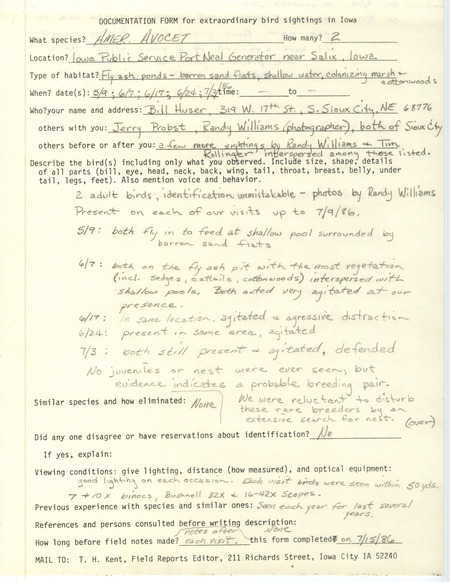 DOCUMENTATION FORM for extraordinary bird sightings in Iowa
What species? AMER. AVOCET How many? 2
Location? Iowa Public Service Port Neal Generator near Salix, Iowa
Type of habitat? Fly ash ponds - barren sand flats, shallow water, colonizing marsh &
cottonwoods
When? date(s): 5/9; 6/7; 6/17; 6/24; 7/3/86 time: — to —
Who? your name and address: Bill Huser, 319 W. 17th St., S. Sioux City, NE 68776
others with you: Jerry Probst, Randy Williams (photographer), both of Sioux City
others before or after you: a few more sightings by Randy Williams & Tim
Rollinger interspersed among those listed.
Describe the bird(s) including only what you observed. Include size, shape, details
of all parts (bill, eye, head, neck, back, wing, tail, throat, breast, belly, under
tail, legs, feet). Also mention voice and behavior.
2 adult birds, identification unmistakable - photos by Randy Williams
Present on each of our visits up to 7/9/86.
5/9: both fly in to feed at shallow pool surrounded by
barren sand flats
6/7: both on the fly ash pit with the most vegetation
(incl. sedges, cattails, cottonwoods) interspersed with
shallow pools. Both acted very agitated at our
presence.
6/17: in same location, agitated & agressive distraction
6/24: present in same area, agitated
7/3: both still present & agitated, defended
No juveniles or nest were ever seen, but
evidence indicates a probable breeding pair.
Similar species and how eliminated: None
We were reluctant to disturb
these rare breeders by an
extensive search for nest.
(over)
Did any one disagree or have reservations about identification? No
If yes, explain:
Viewing conditions: give lighting, distance (how measured), and optical equipment:
good lighting on each occasion. Each visit birds were seen within 50 yds.
7 & 10 x binocs, Bushnell 32X & 16-42X Scopes.
Previous experience with species and similar ones: Seen each year for last several
years.
References and persons consulted before writing description: None
How long before field notes made? notes after each visit. this form completed on 7/15/86
MAIL TO: T. H. Kent, Field Reports Editor, 211 Richards Street, Iowa City IA 52240